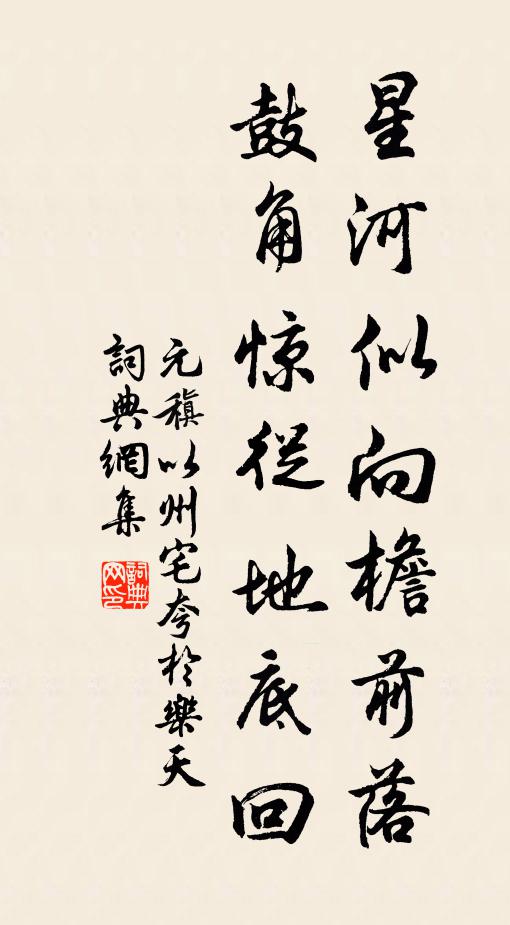 星河似向檐前落
鼓角惊從地底回
元稹以州宅夸於樂天
詞典網集
詞典
网印